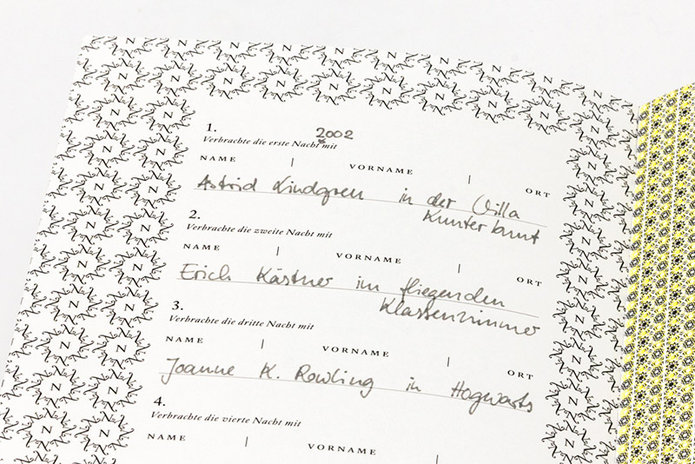 1.
2002
Verbrachte die erste Nacht mit
NAME | VORNAME | ORT
Astrid Lindgren in der Villa
Kunterbunt
2.
Verbrachte die zweite Nacht mit
NAME | VORNAME | ORT
Erich Kästner im fliegenden
Klassenzimmer
3.
Verbrachte die dritte Nacht mit
NAME | VORNAME | ORT
Joanne K. Rowling in Hogwarts
4.
Verbrachte die vierte Nacht mit
NAME | VORNAME